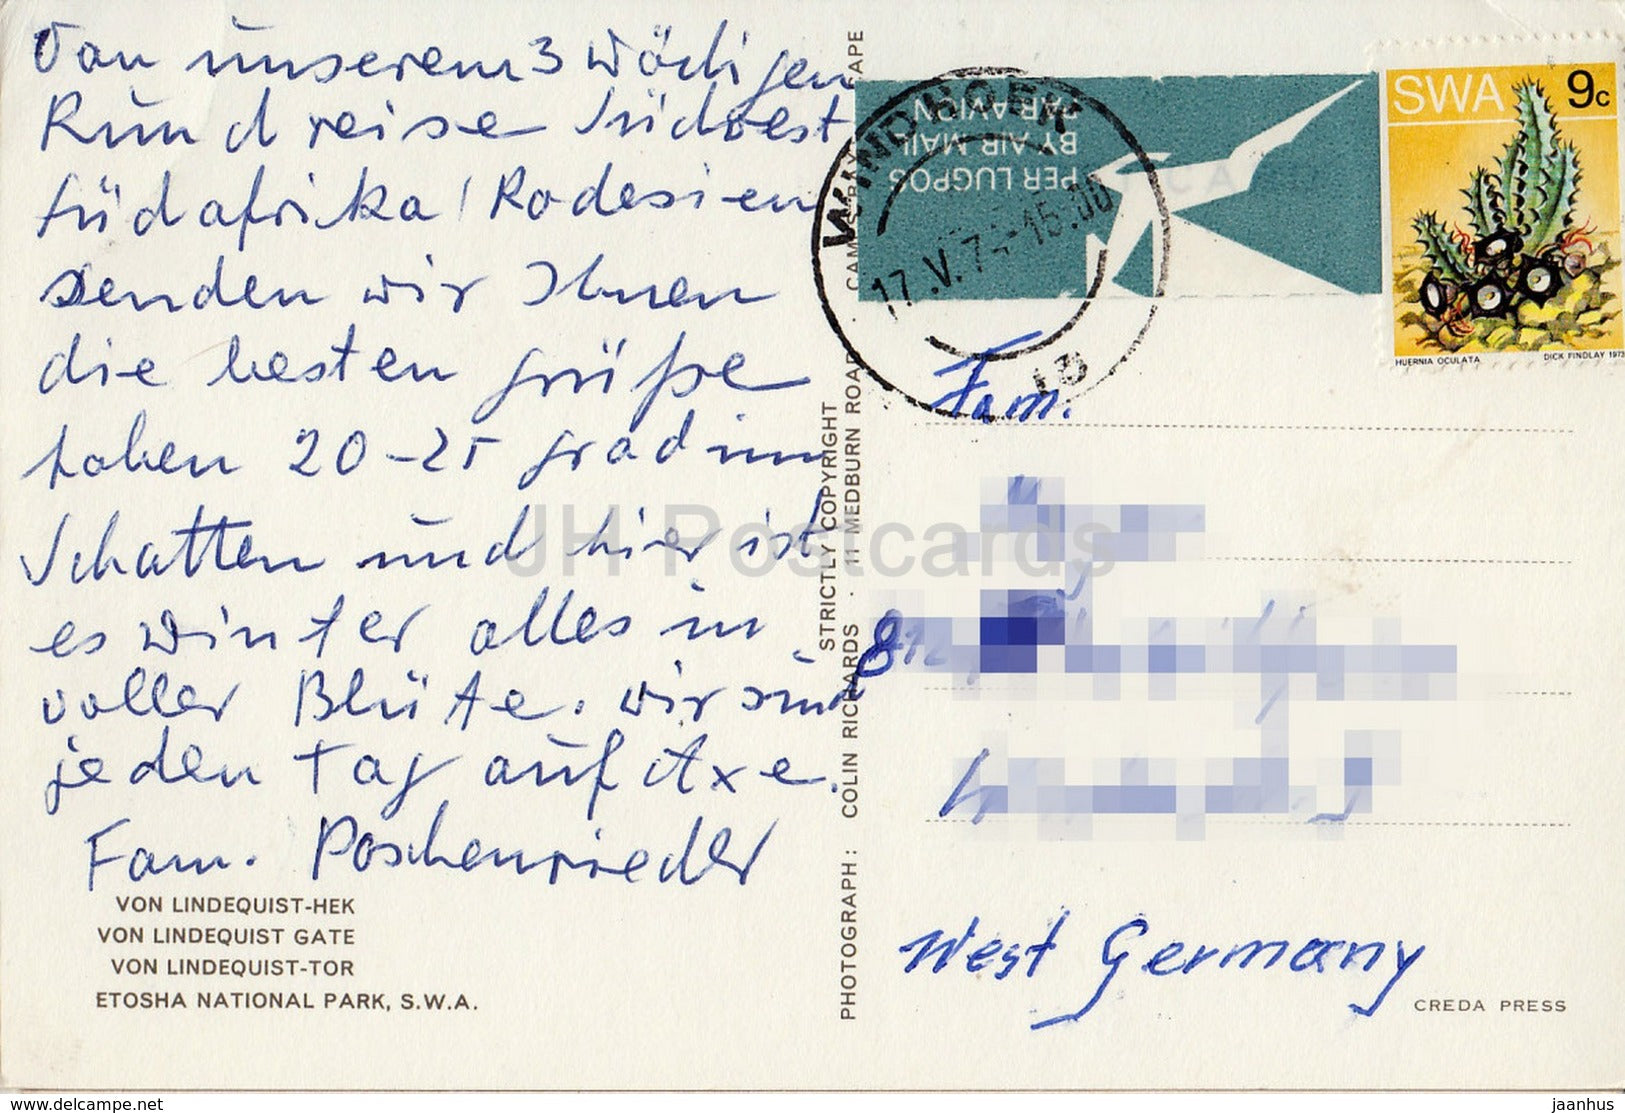 Von unserem 3 wöchigen
Rundreise Südwest
Südafrika / Rodesien
senden wir Ihnen
die besten Grüße
haben 20-25 grad im
Schatten und hier ist
es Winter alles in
voller Blüte. Wir sind
jeden Tag auf Axe.
Fam. Poschenrieder
VON LINDEQUIST-HEK
VON LINDEQUIST GATE
VON LINDEQUIST-TOR
ETOSHA NATIONAL PARK, S.W.A.
STRICTLY COPYRIGHT
PHOTOGRAPH: COLIN RICHARDS · 11 MEDBURN ROAD
PER LUGPOS
BY AIR MAIL
PAR AVION
WINDHOEK
17.V.74-15.00
SWA 9c
HUERNIA OCULATA
DICK FINDLAY 1973
Fam.
8
West Germany
CREDA PRESS
JH Postcards
www.delcampe.net
jaanhus